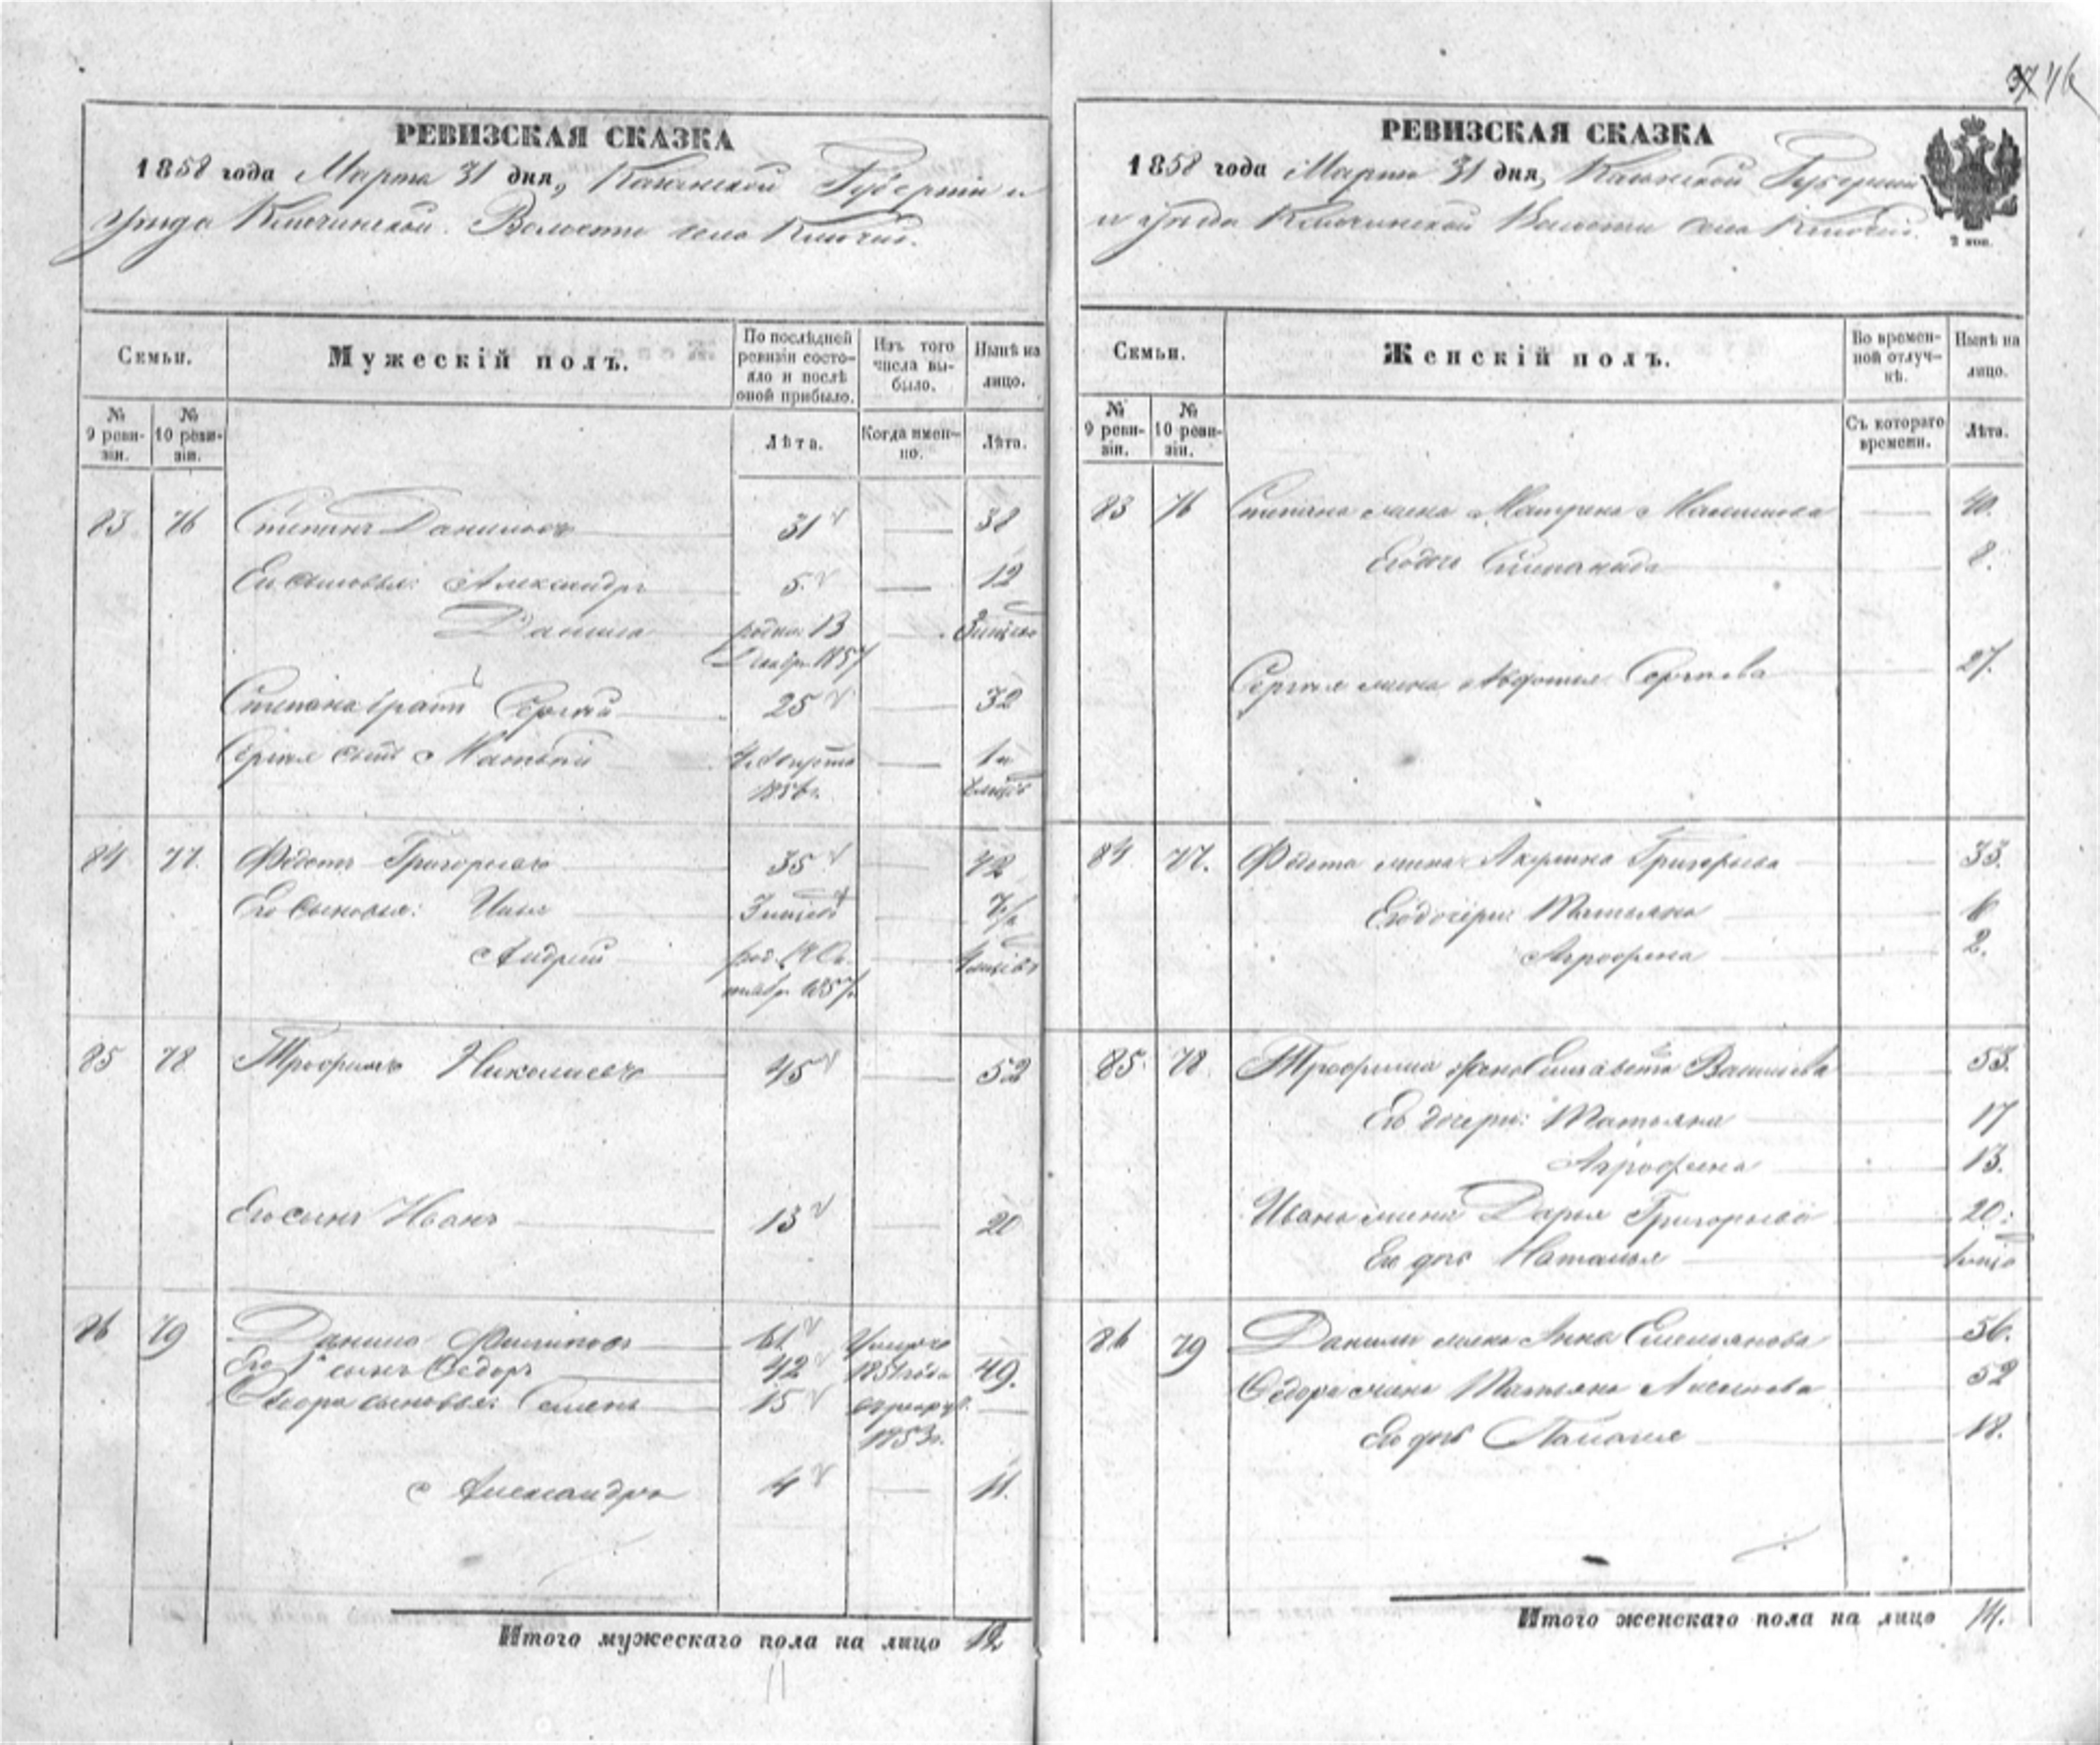 37 46
РЕВИЗСКАЯ СКАЗКА
1858 года Марта 31 дня, Казанской Губернии и
уезда Ключинской Волости села Ключей.
Семьи.
Мужескій полъ.
По послѣдней ревизіи состояло и послѣ оной прибыло.
Изъ того числа выбыло.
Нынѣ на лицо.
№ 9 ревизіи.
№ 10 ревизіи.
Лѣта.
Когда именно.
Лѣта.
83 76 Степанъ Даниловъ 31 — 38
Его сыновья: Александръ 5 — 12
Данила родил. 13 — 3 мѣсяца
Декабр. 1857
Степана братъ Сергѣй 25 — 32
Сергѣя сынъ Матвѣй Августа — 1 и
1856 г.
84 77. Федотъ Григорьевъ 35 — 42
Его сыновья: Илья 3 мѣсяцов — 7 1/2
Андрей род. —
1857
85 78 Трофимъ Николаевъ 45 — 52
Его сынъ Иванъ 13 — 20
86 79 Данило Филиповъ 61 Умеръ
Его 1й сынъ Ѳедоръ 42 1851 года 49.
Ѳедора сыновья: Семенъ 15 —
1853 г.
Александръ 4 — 11.
Итого мужескаго пола на лицо 12
11
РЕВИЗСКАЯ СКАЗКА
1858 года Марта 31 дня, Казанской Губернии
и уезда Ключинской Волости села Ключей.
2 коп.
Семьи.
Женскій полъ.
Во временной отлучкѣ.
Нынѣ на лицо.
№ 9 ревизіи.
№ 10 ревизіи.
Съ котораго времени.
Лѣта.
83 76 Степана жена Матрена — 40.
Его дочь Степанида — 8.
Сергѣя жена Авдотья Сергѣева — 27.
84. 77. Федота жена Акулина Григорьева — 33.
Его дочери: Татьяна — 6
Аграфена — 2.
85. 78. Трофима жена Елизавета Васильева — 53.
Его дочери: Татьяна — 17
Аграфена — 13.
Ивана жена Дарья Григорьева — 20.
Его дочь Наталья —
86 79 Данилы жена Анна Емельянова — 56.
Ѳедора жена Татьяна — 52
Его дочь Пелагея — 18.
Итого женскаго пола на лицо 14.